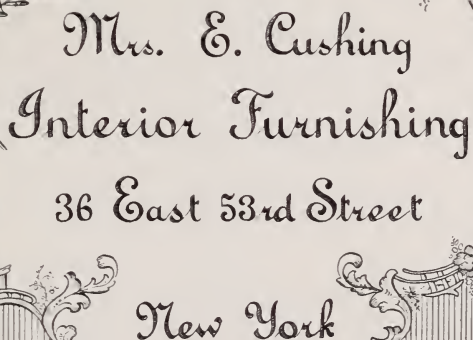 Mrs. E. Cushing
Interior Furnishing
36 East 53rd Street
New York